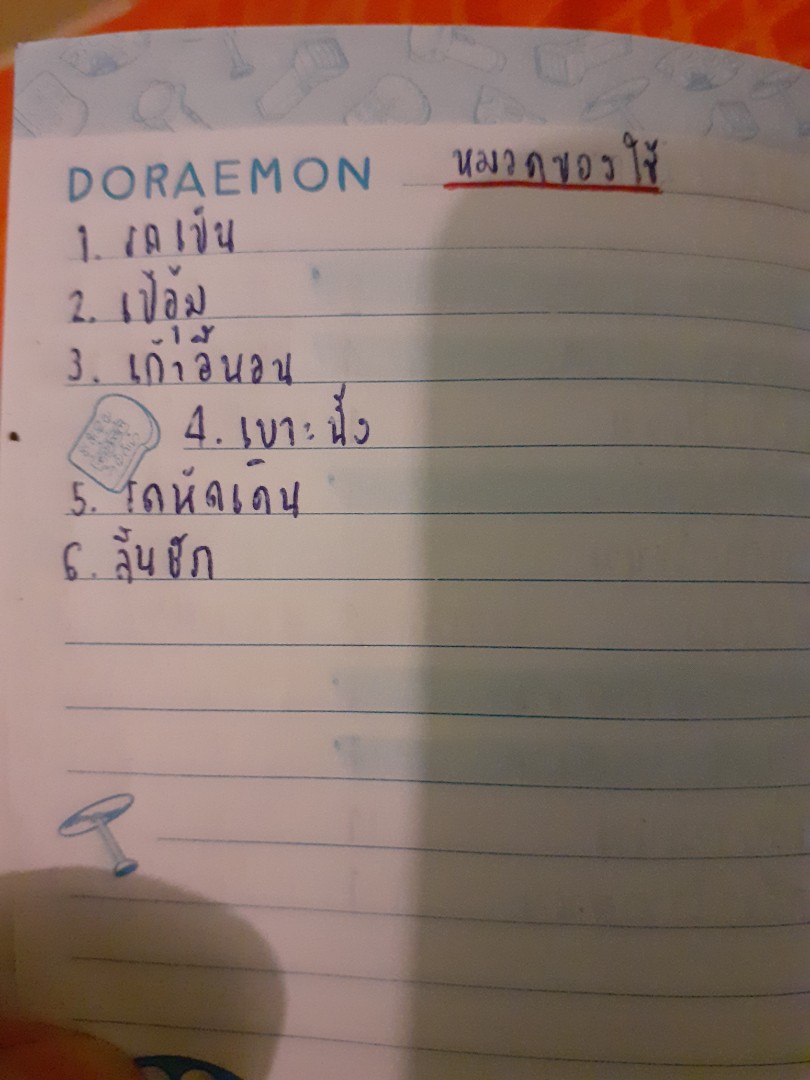 DORAEMON หมวดของใช้
1. รถเข็น
2. เป้อุ้ม
3. เก้าอี้นอน
4. เบาะนั่ง
5. รถหัดเดิน
6. ลิ้นชัก